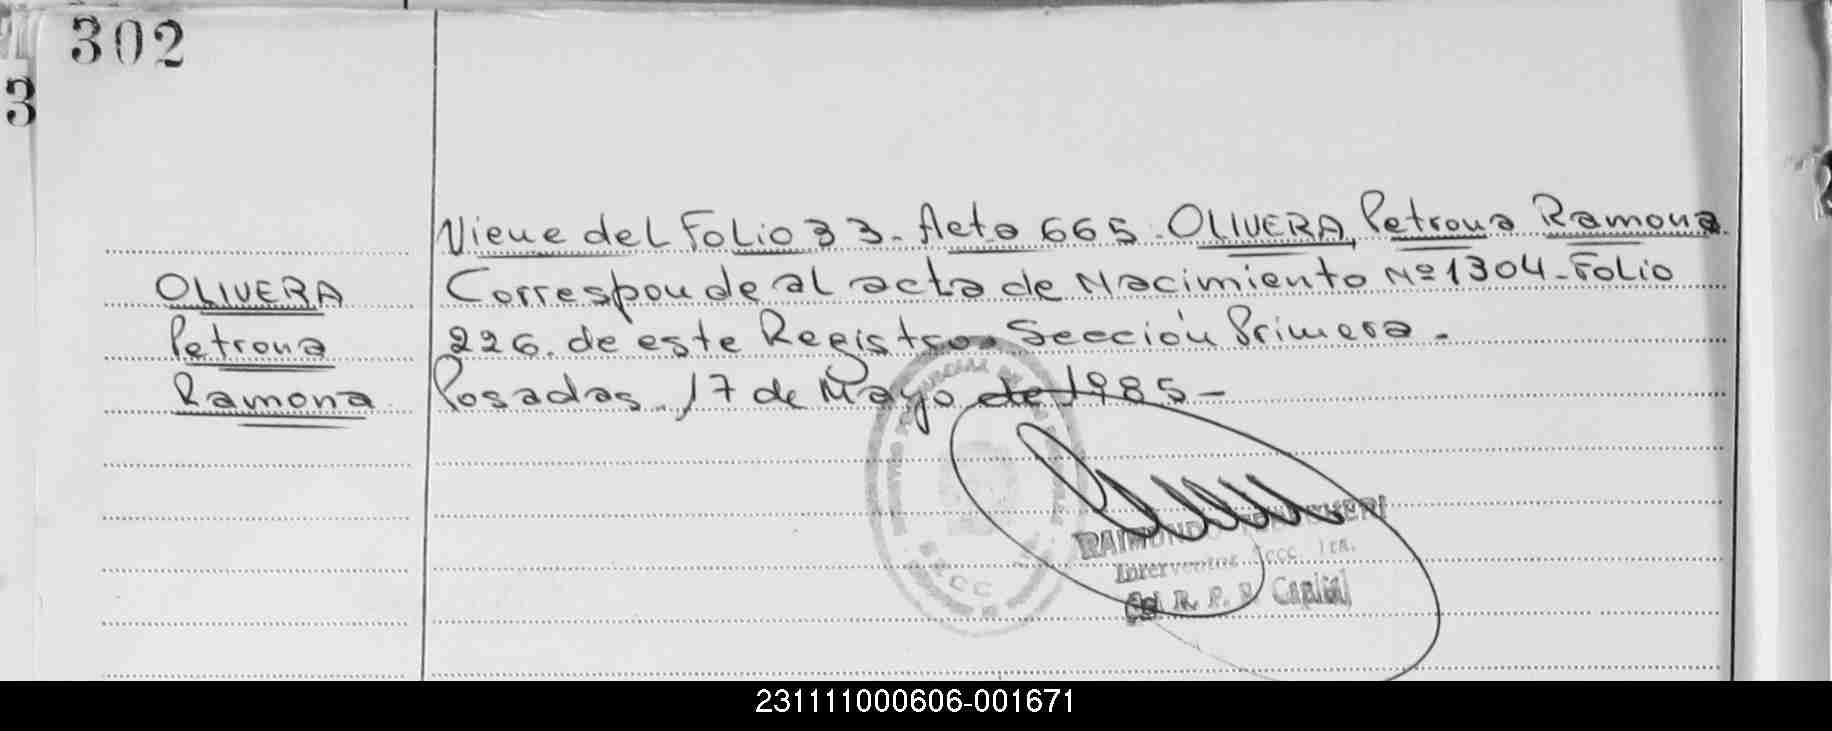 302
3
Viene del Folio 33. Acta 665. OLIVERA, Petrona Ramona.
OLIVERA
Corresponde al acta de Nacimiento Nº 1304 - Folio
Petrona
226. de este Registro - Sección Primera.
Ramona
Posadas, 17 de Mayo de 1985 -
RAIMUNDO
Interventor Secc. 1ra.
Del R. P. P. Capital
231111000606-001671